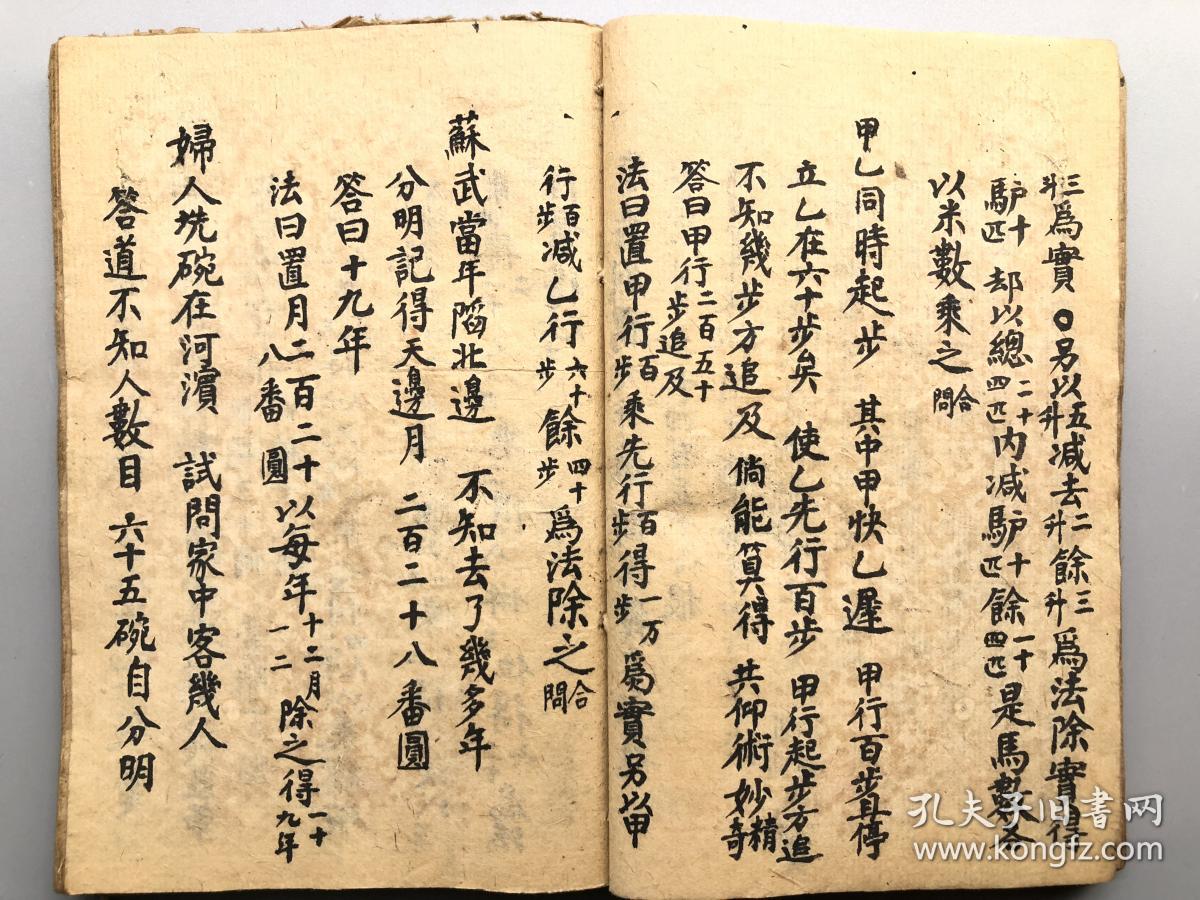 三斗爲實〇另以五升减去二升餘三升爲法除實得
驴十匹 却以總二十四匹内減驴十匹餘一十四匹是馬數合
以米數乘之合問
甲乙同時起步 其中甲快乙遲 甲行百步且停
立乙在六十步矣 使乙先行百步 甲行起步方追
不知幾步方追及 倘能算得 共仰術妙精奇
答曰甲行二百五十步追及
法曰置甲行百步乘先行百步得一万步爲實另以甲
行百步减乙行六十步餘四十步爲法除之合問
蘇武當年陷北邊 不知去了幾多年
分明記得天邊月 二百二十八番圓
答曰十九年
法曰置月二百二十八番圓以每年十二月一二除之得一十九年
婦人洗碗在河濱 試問家中客幾人
答道不知人數目 六十五碗自分明
孔夫子旧書网
www.kongfz.com